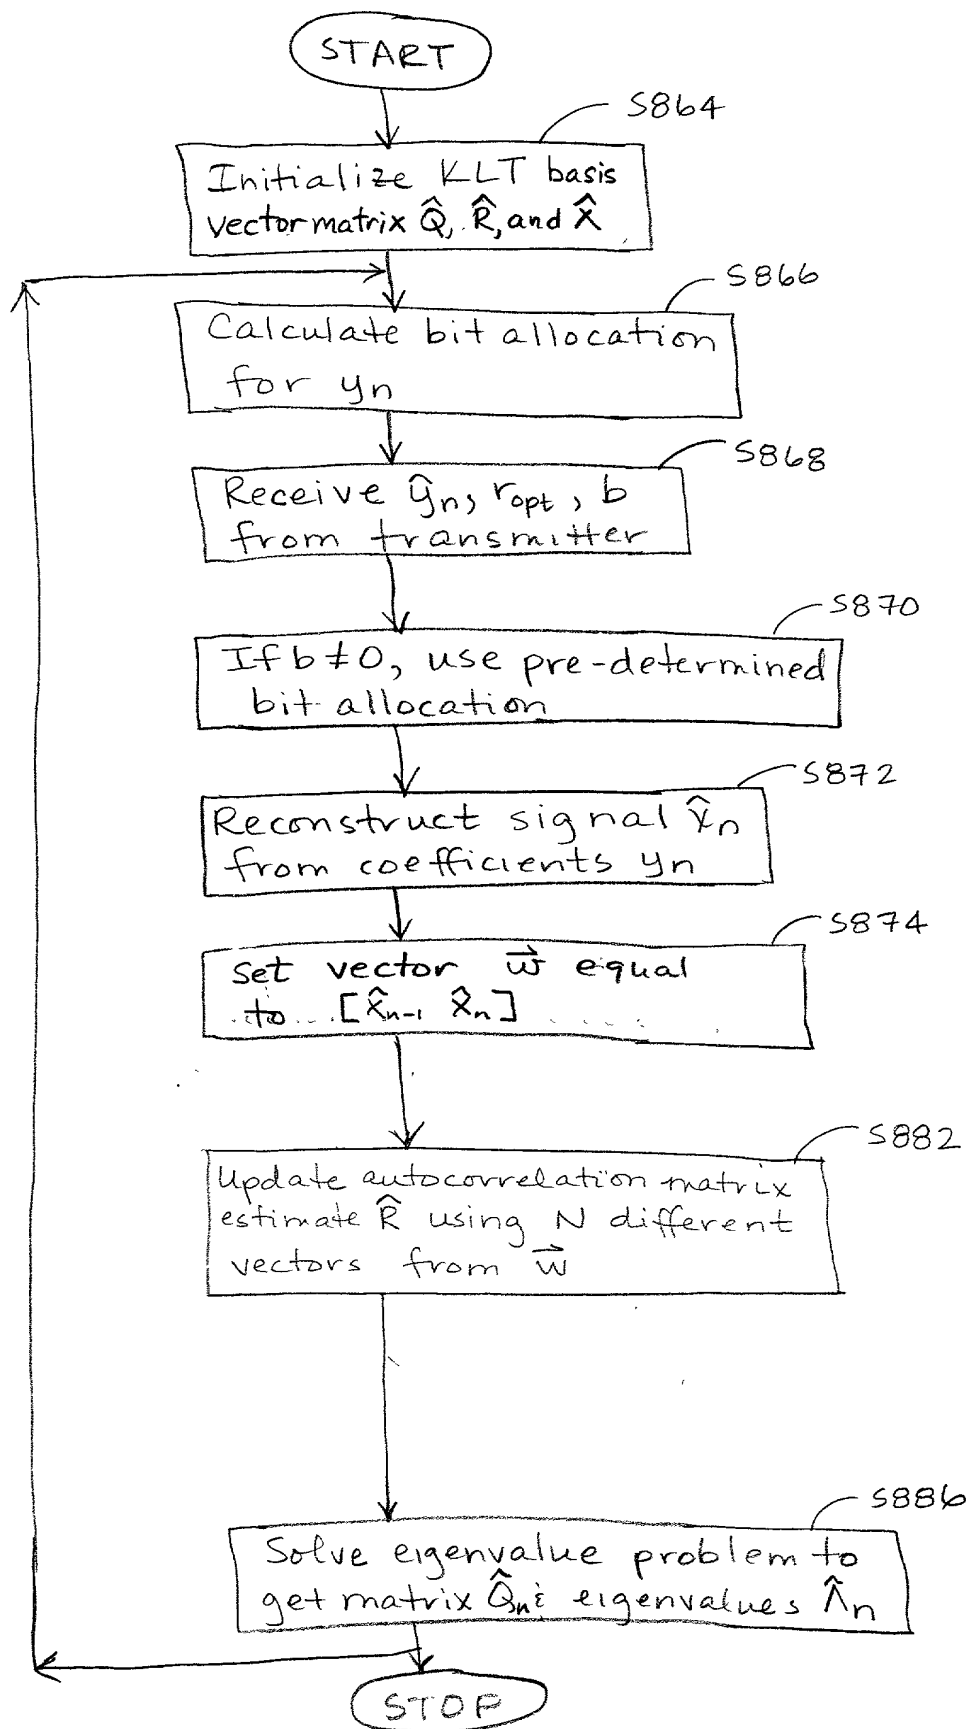 START
S864
Initialize KLT basis
vector matrix Q̂, R̂, and X̂
S866
Calculate bit allocation
for yn
S868
Receive ŷn, ropt, b
from transmitter
S870
If b ≠ 0, use pre-determined
bit allocation
S872
Reconstruct signal x̂n
from coefficients yn
S874
set vector w⃗ equal
to [x̂n-1 x̂n]
S882
Update autocorrelation matrix
estimate R̂ using N different
vectors from w⃗
S886
Solve eigenvalue problem to
get matrix Q̂n & eigenvalues Λ̂n
STOP